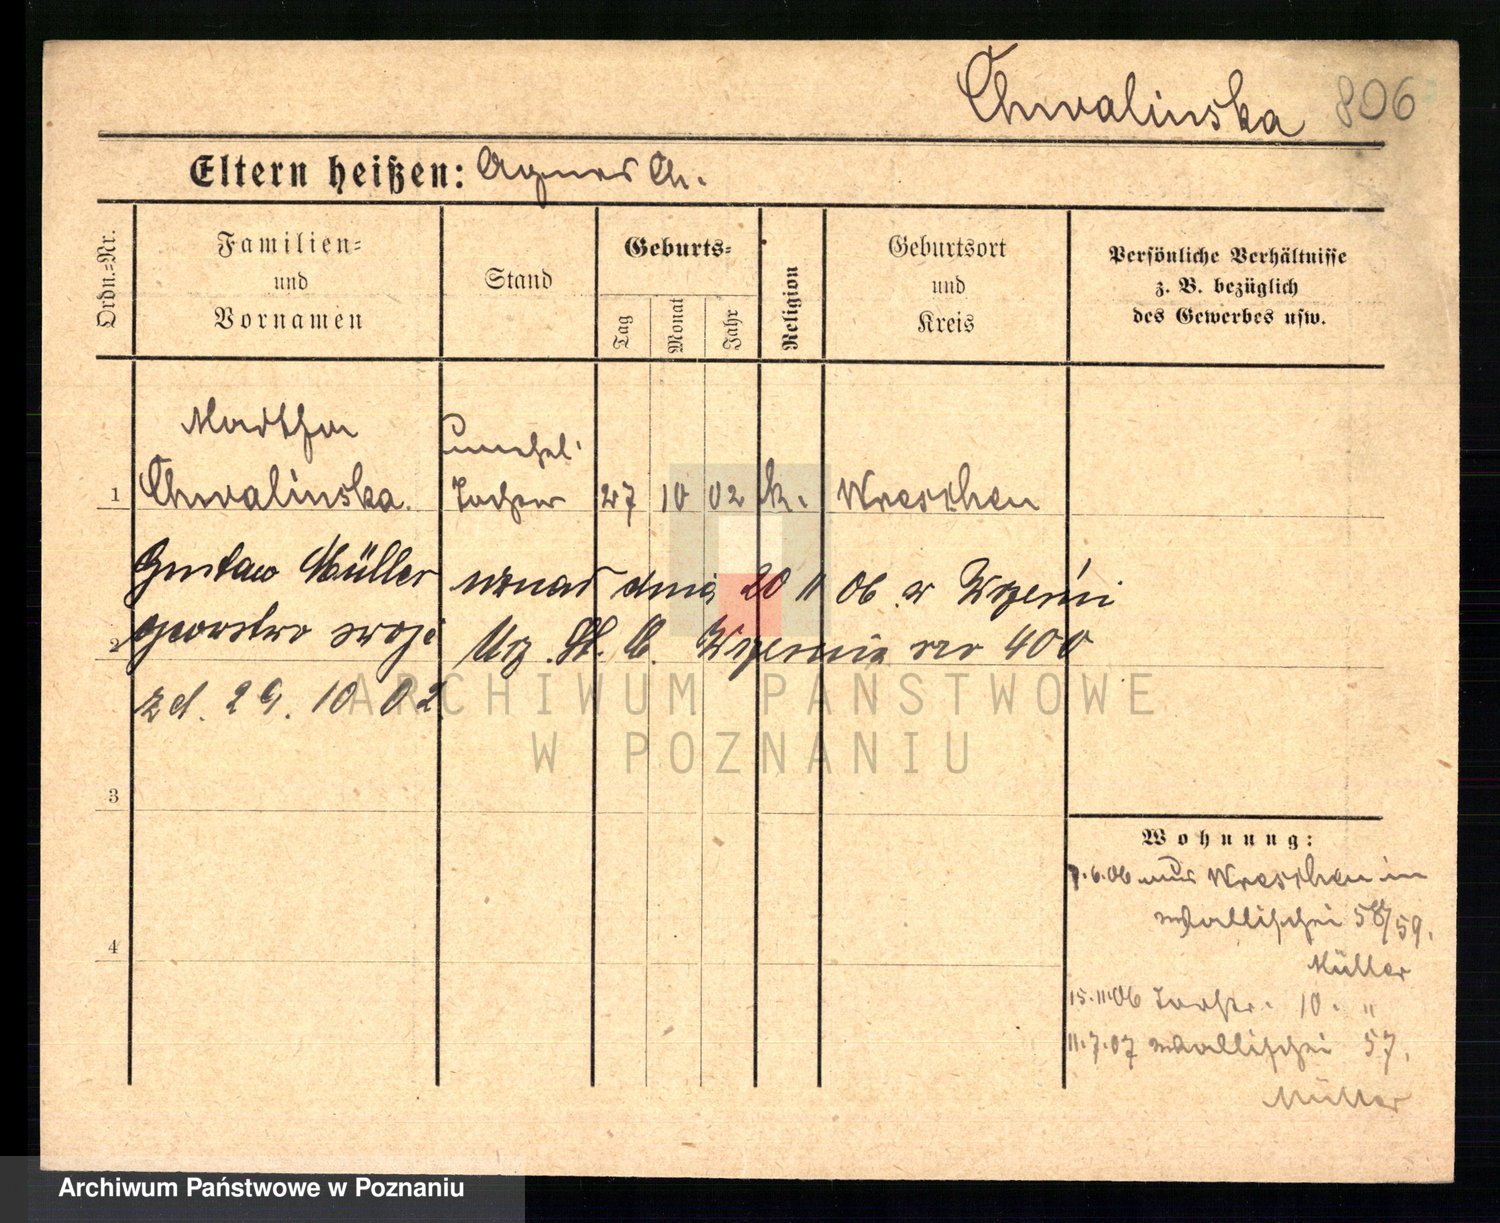 Chwalinska 806
Eltern heißen: Agnes Ch.
Ordn.-Nr.
Familien-
und
Vornamen
Stand
Geburts-
Tag
Monat
Jahr
Religion
Geburtsort
und
Kreis
Persönliche Verhältnisse
z. B. bezüglich
des Gewerbes usw.
Martha
unehel.
1 Chwalinska. Tochter 27 10 02 k. Wreschen
Gustaw Müller uznał dnia 20 11 06 w Wrześni
2 ojcostwo swoje Urz. St. C. Września nr 400
zd. 29. 10 02
3
4
Wohnung:
7.6.06 aus Wreschen in
Wallischei 58/59.
Müller
15.11.06 10. "
11.7.07 Wallischei 57.
Müller
ARCHIWUM PAŃSTWOWE
W POZNANIU
Archiwum Państwowe w Poznaniu